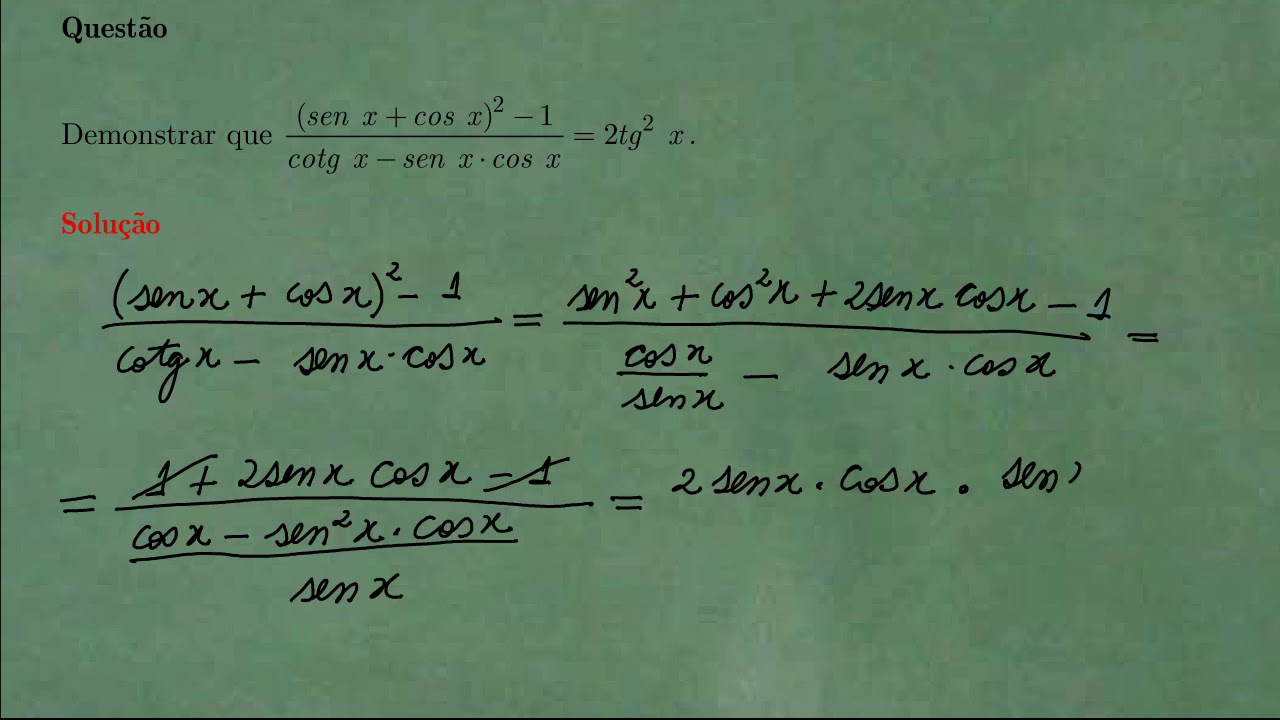 Questão
Demonstrar que \frac{(sen x + cos x)^2 - 1}{cotg x - sen x · cos x} = 2tg^2 x.
Solução
\frac{(sen x + cos x)^2 - 1}{cotg x - sen x · cos x} = \frac{sen^2 x + cos^2 x + 2sen x cos x - 1}{\frac{cos x}{sen x} - sen x · cos x} =
= \frac{1 + 2sen x cos x - 1}{\frac{cos x - sen^2 x · cos x}{sen x}} = 2 sen x · cos x · sen